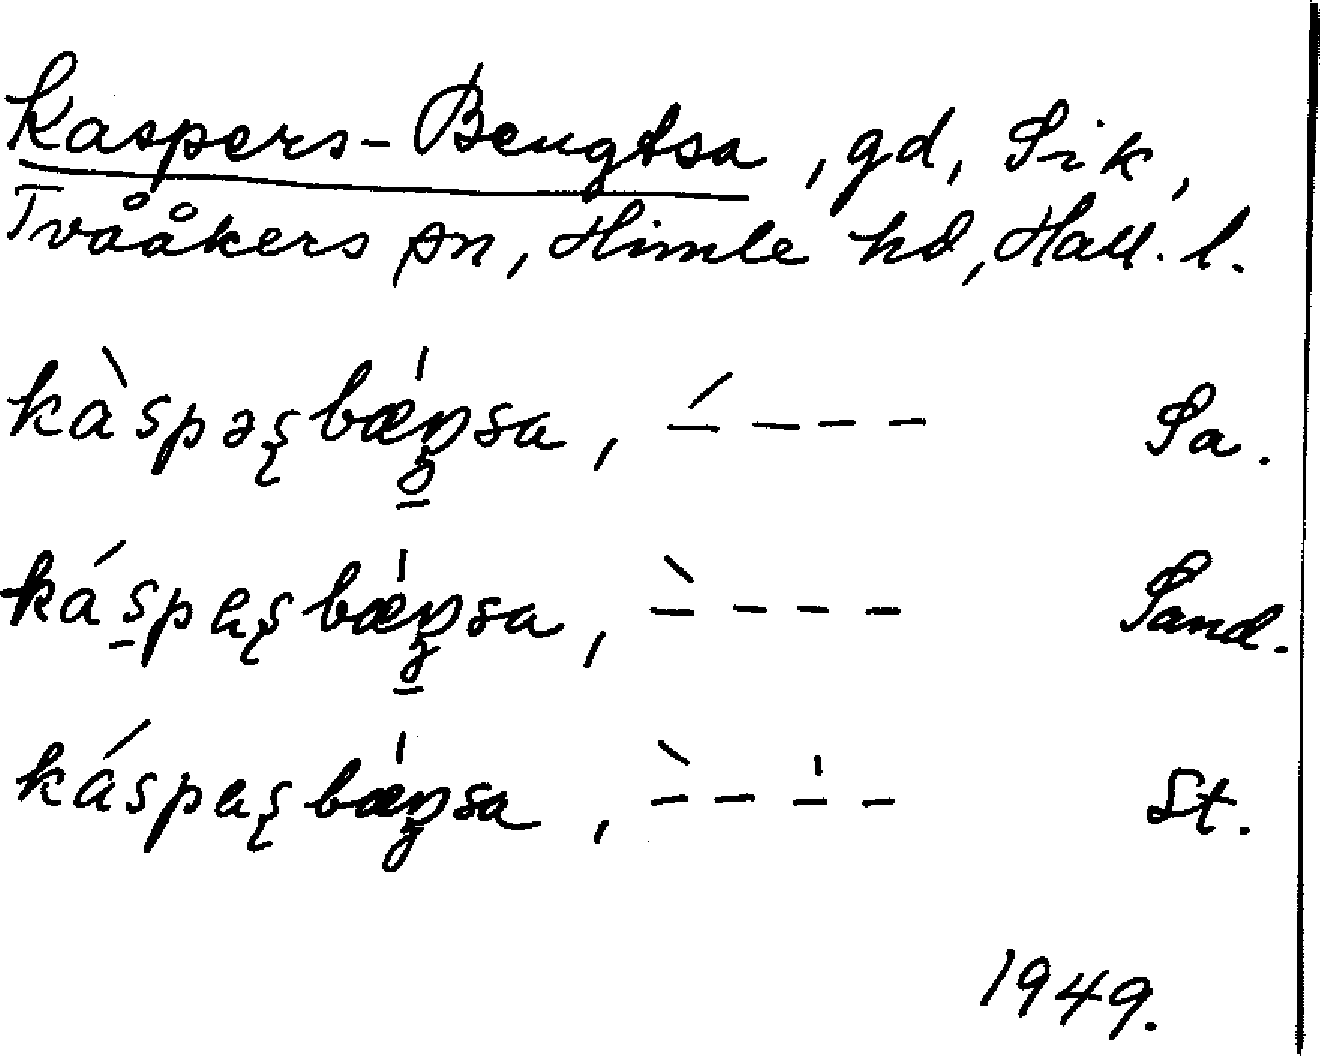 Kaspers-Bengtsa, gd, Sik,
Tvååkers sn, Himle hd, Hall. l.
kàspəʂbæ̍ŋsa, ´– – – – Sa.
káspaʂbæ̍ŋsa, `– – – – Sand.
káspaʂbæ̍ŋsa, `– – –̍ – St.
1949.